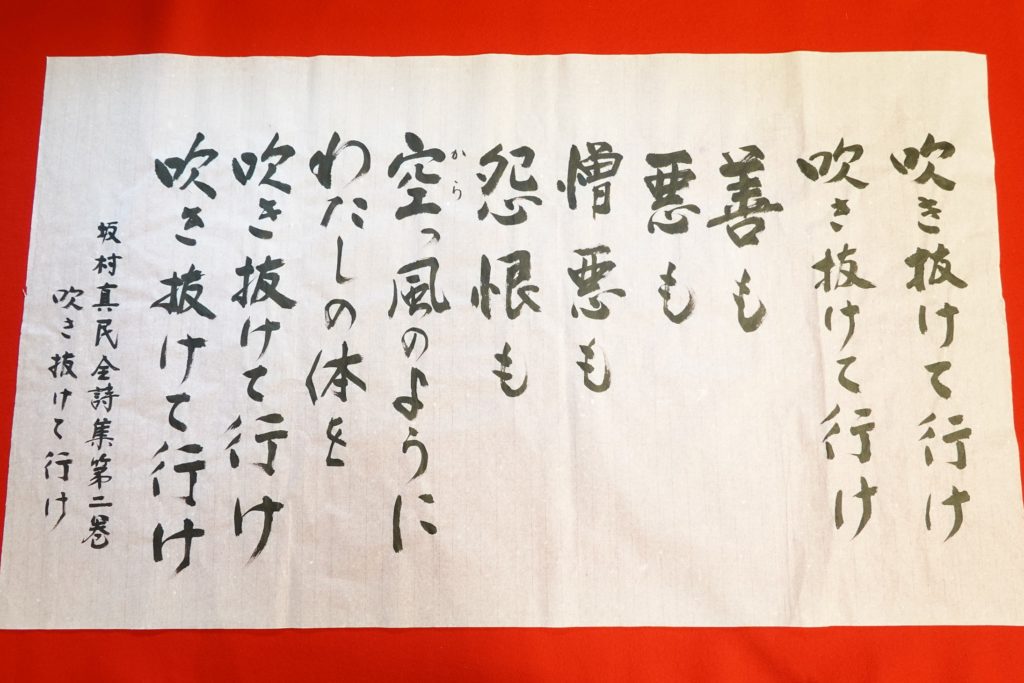 吹き抜けて行け
吹き抜けて行け
善も
悪も
憎悪も
怨恨も
空っ風のように
から
わたしの体を
吹き抜けて行け
吹き抜けて行け
坂村真民全詩集第二巻
吹き抜けて行け